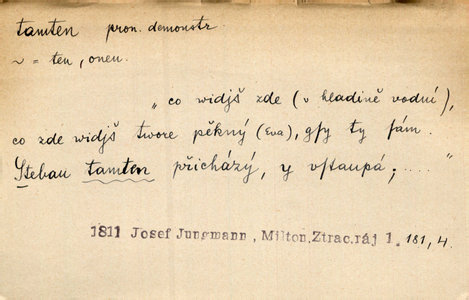 tamten pron. demonstr.
~ = ten, onen.
„co widjš zde (v hladině vodní),
co zde widjš twore pěkný (Eva), gſy ty ſám.
S tebau tamten přicházý, y vſtaupá; .... "
1811 Josef Jungmann, Milton, Ztrac. ráj 1. 181, 4.